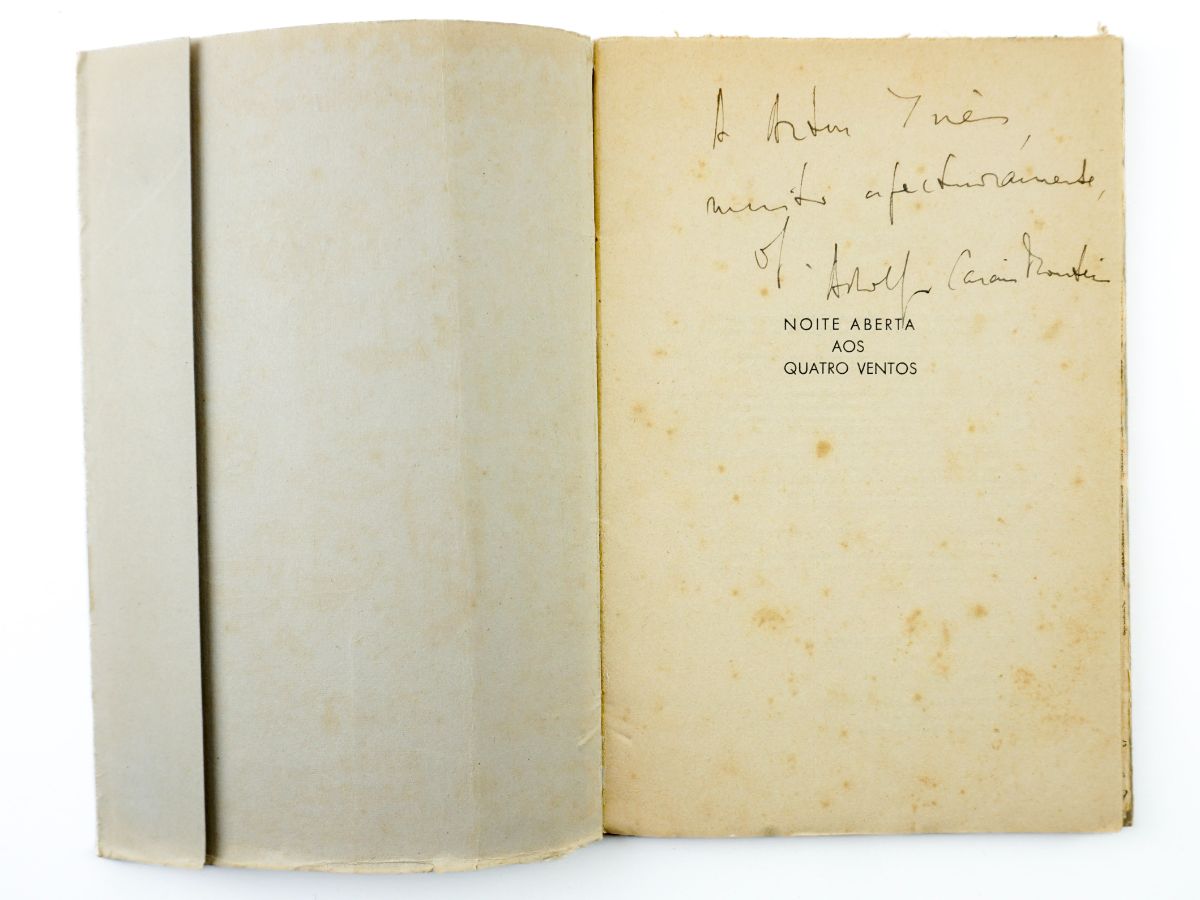 A Artur Inês,
muito afectuosamente,
of. Adolfo Casais Monteiro
NOITE ABERTA
AOS
QUATRO VENTOS